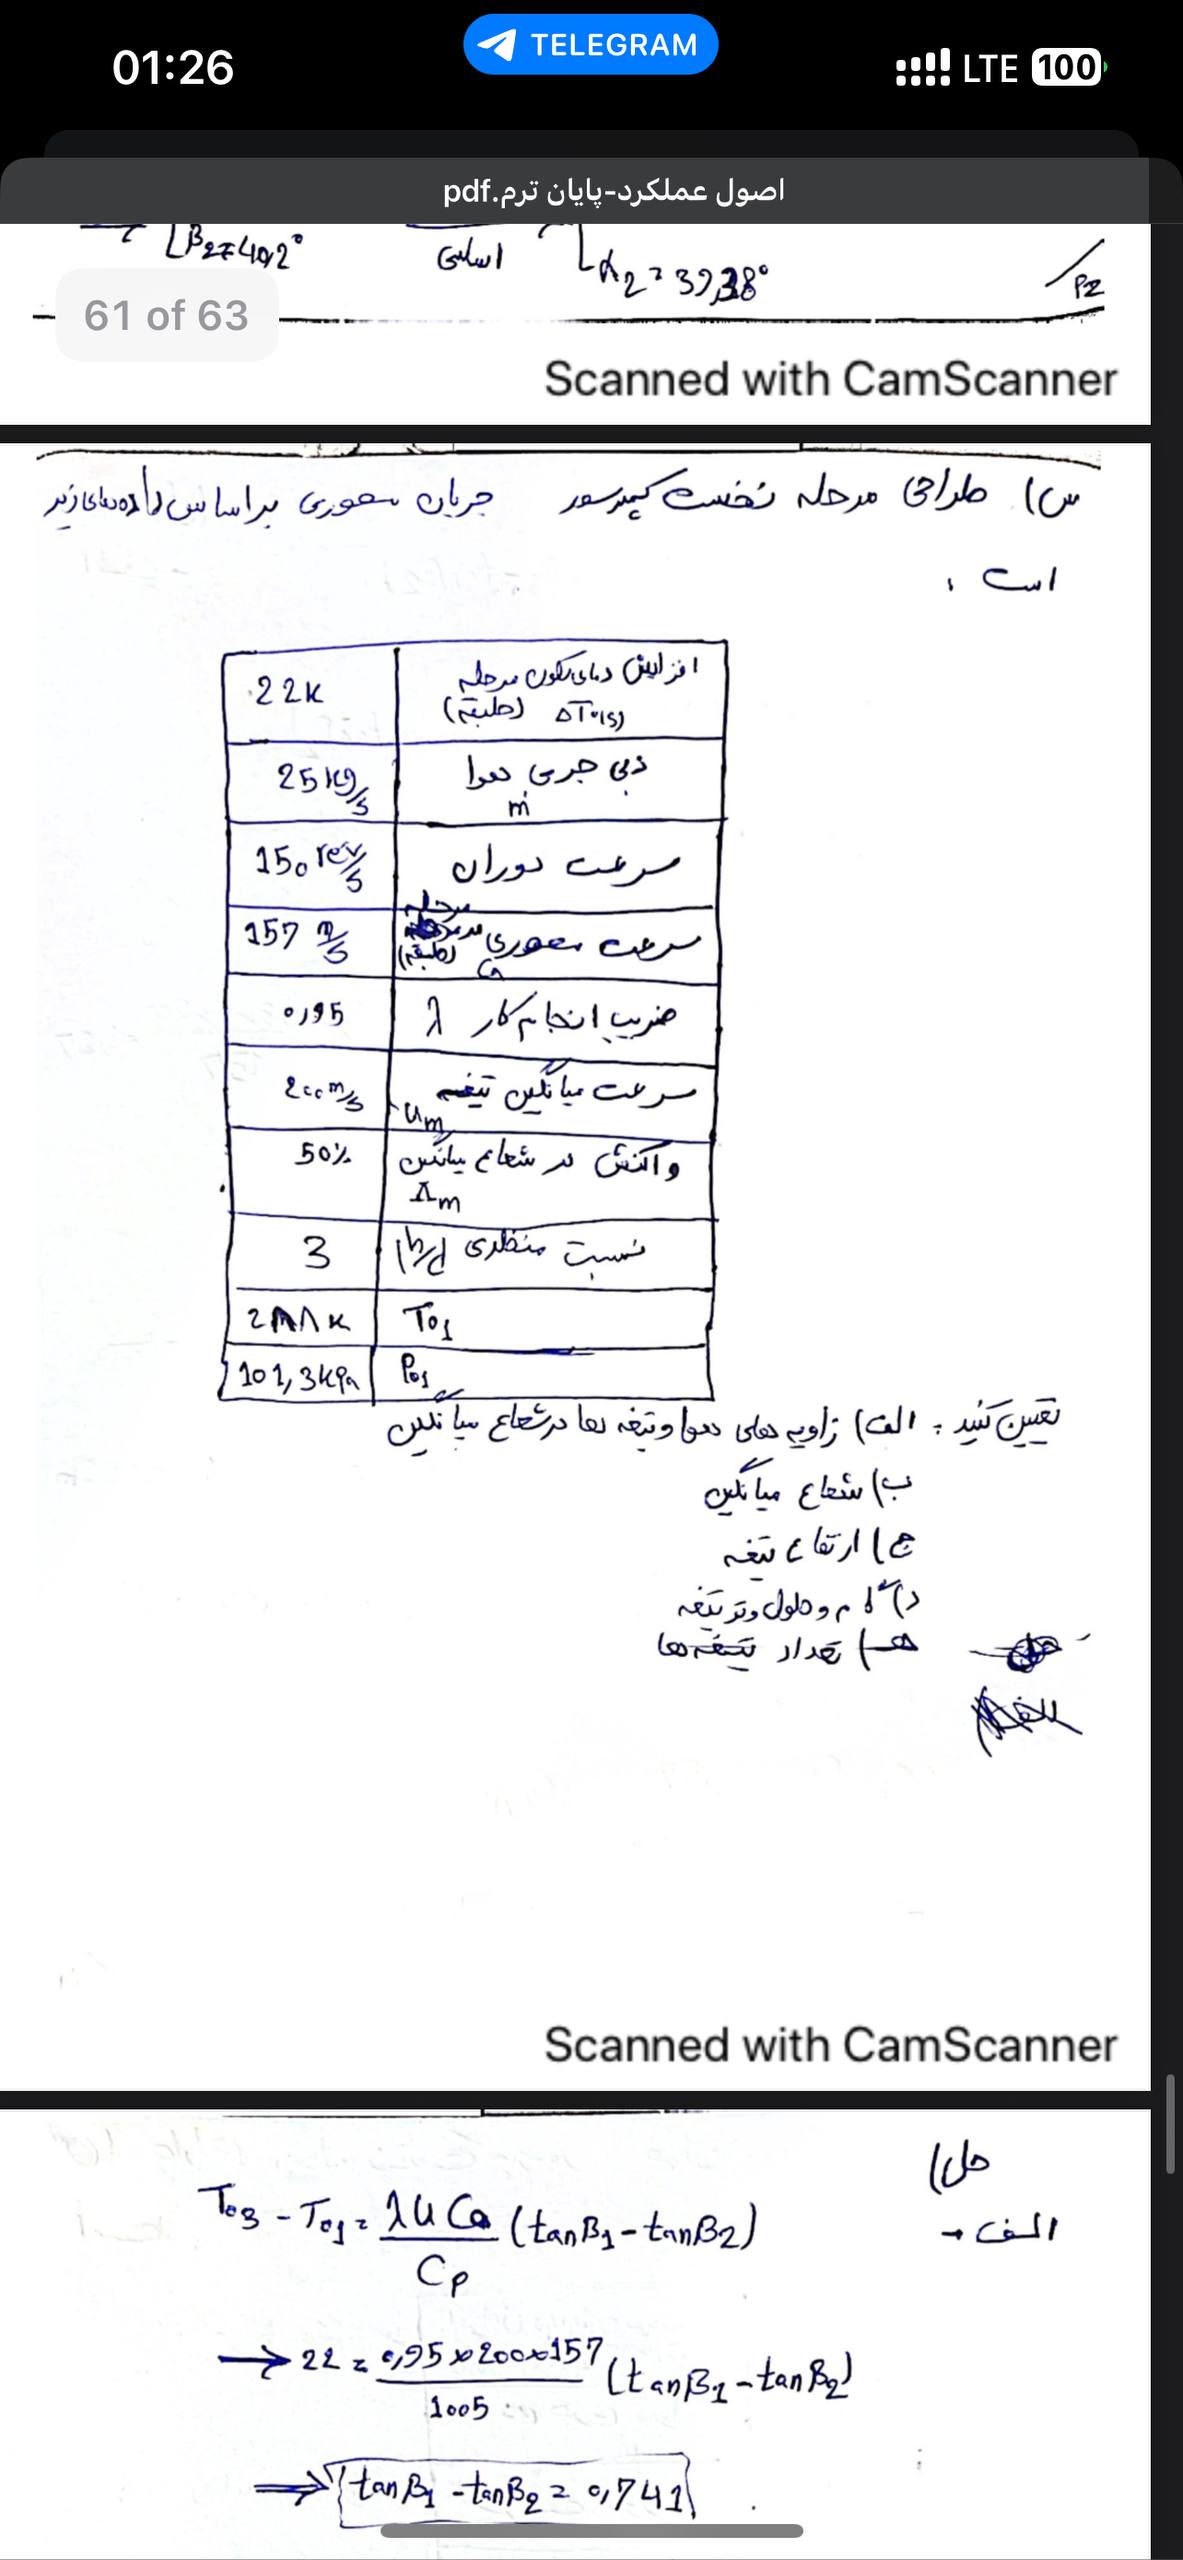 01:26
TELEGRAM
LTE 100
اصول عملکرد-پایان ترم.pdf
β2=40,2°
α2=39,38°
P2
61 of 63
Scanned with CamScanner
س۱) طراحی مرحله نخست کمپرسور جریان محوری براساس داده‌های زیر
است :
افزایش دمای سکون مرحله (طبقه) ΔT0(S) 22K
دبی جرمی هوا ṁ 25 kg/s
سرعت دوران 150 rev/s
سرعت محوری مرحله (طبقه) Ca 157 m/s
ضریب انجام کار λ 0,95
سرعت میانگین تیغه Um 200 m/s
واکنش در شعاع میانگین Λm 50%
نسبت منظری (h/c) 3
T01 2۸۸K
P01 101,3kPa
تعیین کنید : الف) زاویه های هوا و تیغه ها در شعاع میانگین
ب) شعاع میانگین
ج) ارتفاع تیغه
د) گام و طول وتر تیغه
هـ) تعداد تیغه‌ها
Scanned with CamScanner
حل)
الف →
T03 - T01 = λUCa/Cp (tanβ1 - tanβ2)
→ 22 = 0,95×200×157/1005 (tanβ1 - tanβ2)
⇒ tanβ1 - tanβ2 = 0,741